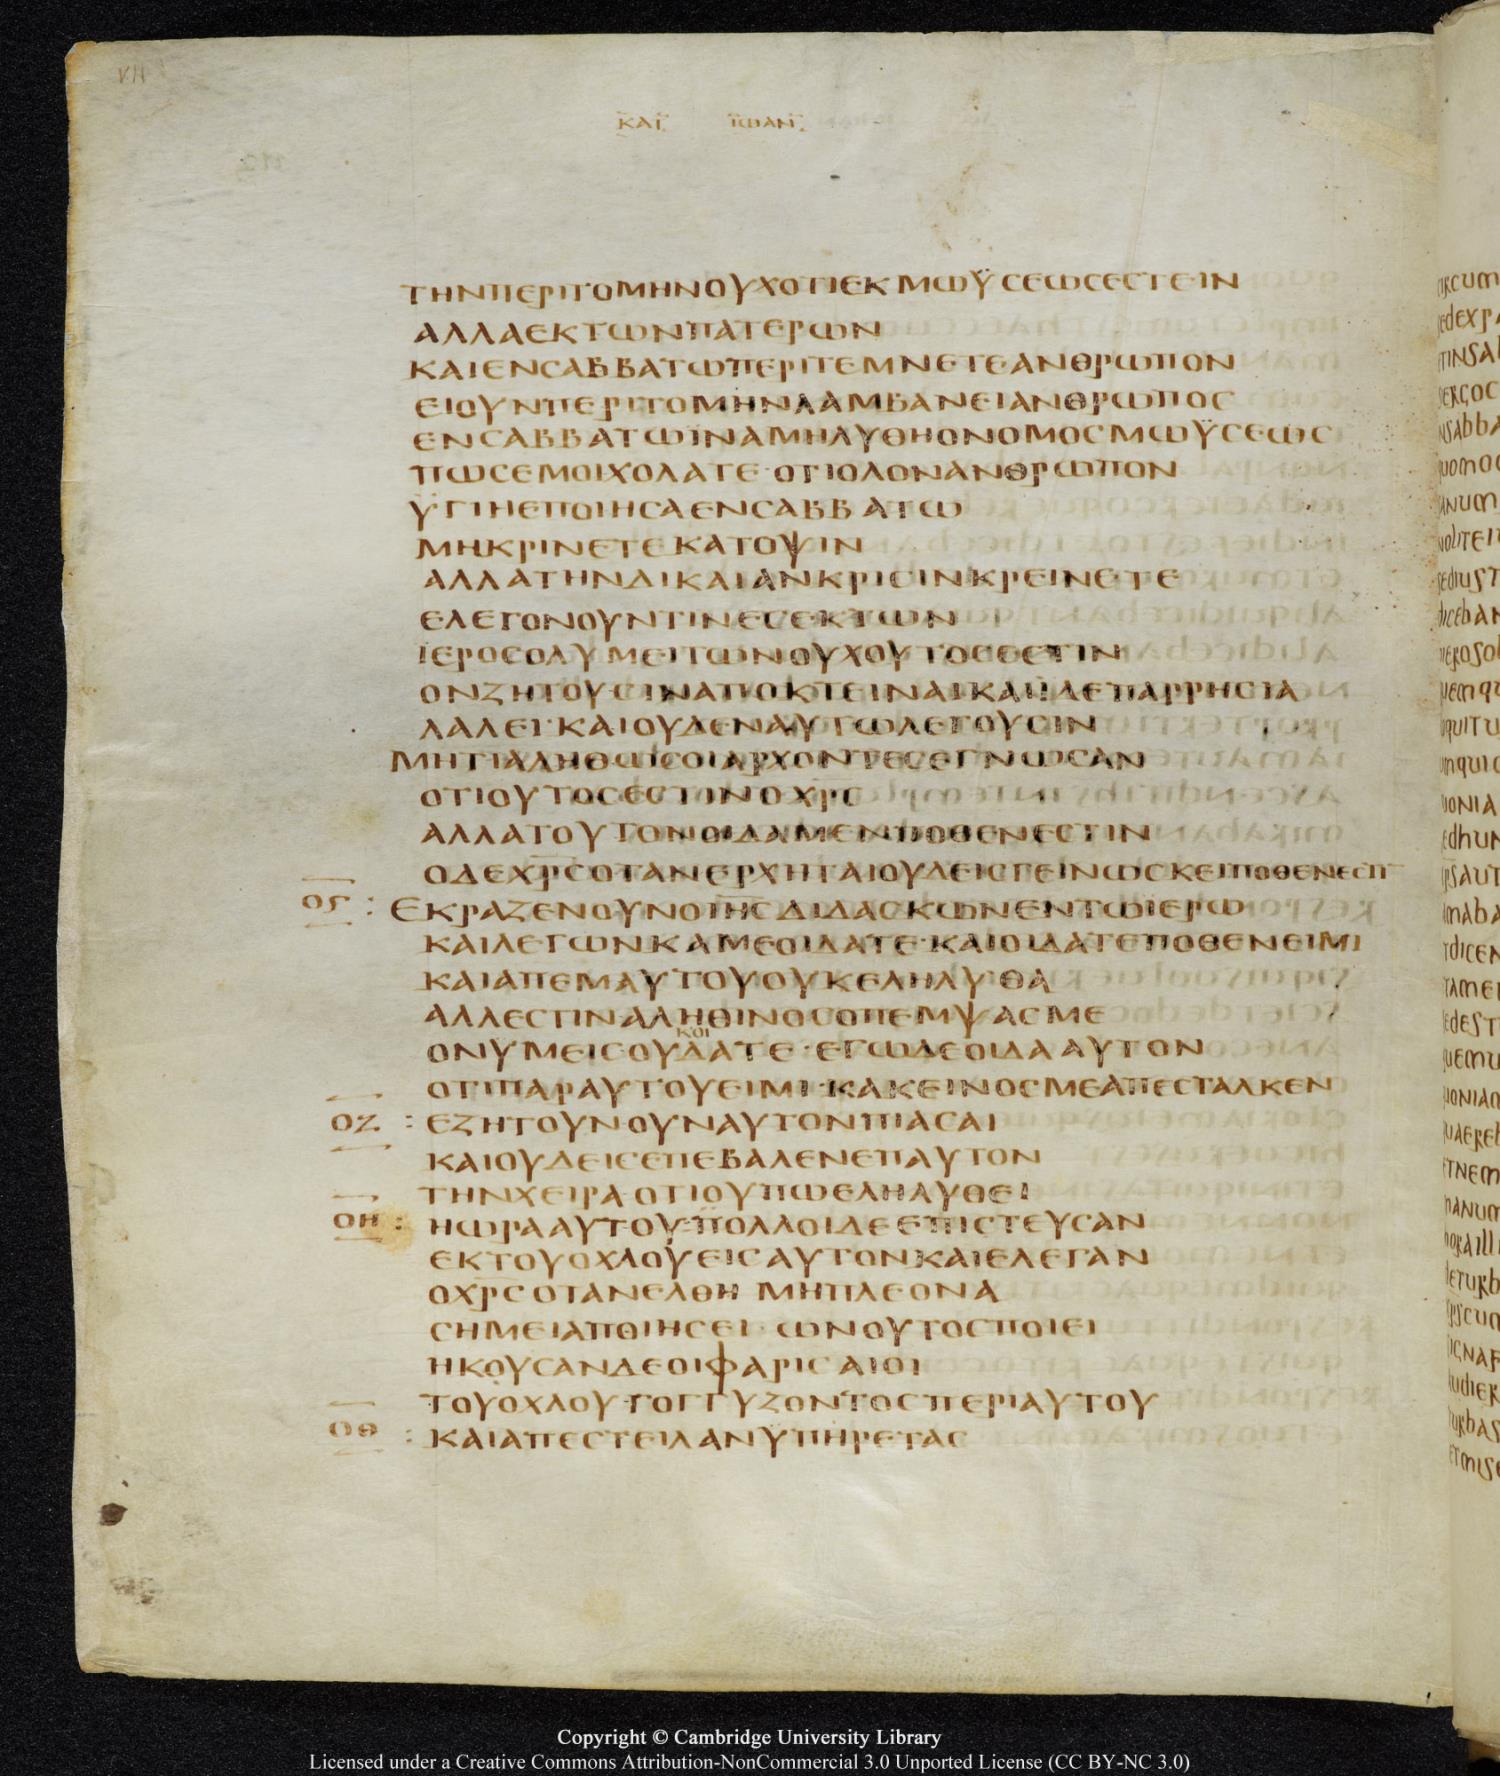 VII
ΚΑΤ ΙΩΑΝ
ΤΗΝΠΕΡΙΤΟΜΗΝΟΥΧΟΤΙΕΚΜΩΫΣΕΩΣΕΣΤΕΙΝ
ΑΛΛΑΕΚΤΩΝΠΑΤΕΡΩΝ
ΚΑΙΕΝΣΑΒΒΑΤΩΠΕΡΙΤΕΜΝΕΤΕΑΝΘΡΩΠΟΝ
ΕΙΟΥΝΠΕΡΙΤΟΜΗΝΛΑΜΒΑΝΕΙΑΝΘΡΩΠΟΣ
ΕΝΣΑΒΒΑΤΩΙΝΑΜΗΛΥΘΗΟΝΟΜΟΣΜΩΫΣΕΩΣ
ΠΩΣΕΜΟΙΧΟΛΑΤΕ·ΟΤΙΟΛΟΝΑΝΘΡΩΠΟΝ
ΫΓΙΗΕΠΟΙΗΣΑΕΝΣΑΒΒΑΤΩ
ΜΗΚΡΙΝΕΤΕΚΑΤΟΨΙΝ
ΑΛΛΑΤΗΝΔΙΚΑΙΑΝΚΡΙΣΙΝΚΡΕΙΝΕΤΕ
ΕΛΕΓΟΝΟΥΝΤΙΝΕΣΕΚΤΩΝ
ΙΕΡΟΣΟΛΥΜΕΙΤΩΝΟΥΧΟΥΤΟΣΕΣΤΙΝ
ΟΝΖΗΤΟΥΣΙΝΑΠΟΚΤΕΙΝΑΙΚΑΙΙΔΕΠΑΡΡΗΣΙΑ
ΛΑΛΕΙ·ΚΑΙΟΥΔΕΝΑΥΤΩΛΕΓΟΥΣΙΝ
ΜΗΤΙΑΛΗΘΩΣΟΙΑΡΧΟΝΤΕΣΕΓΝΩΣΑΝ
ΟΤΙΟΥΤΟΣΕΣΤΙΝΟΧΡΣ
ΑΛΛΑΤΟΥΤΟΝΟΙΔΑΜΕΝΠΟΘΕΝΕΣΤΙΝ
ΟΔΕΧΡΣΟΤΑΝΕΡΧΗΤΑΙΟΥΔΕΙΣΓΕΙΝΩΣΚΕΙΠΟΘΕΝΕΣΤΙ
ΟϚ : ΕΚΡΑΖΕΝΟΥΝΟΙΗΣΔΙΔΑΣΚΩΝΕΝΤΩΙΕΡΩ
ΚΑΙΛΕΓΩΝΚΑΜΕΟΙΔΑΤΕ·ΚΑΙΟΙΔΑΤΕΠΟΘΕΝΕΙΜΙ
ΚΑΙΑΠΕΜΑΥΤΟΥΟΥΚΕΛΗΛΥΘΑ
ΑΛΛΕΣΤΙΝΑΛΗΘΙΝΟΣΟΠΕΜΨΑΣΜΕ
κοι
ΟΝΥΜΕΙΣΟΥΔΑΤΕ·ΕΓΩΔΕΟΙΔΑΑΥΤΟΝ
ΟΤΙΠΑΡΑΥΤΟΥΕΙΜΙ·ΚΑΚΕΙΝΟΣΜΕΑΠΕΣΤΑΛΚΕΝ
ΟΖ : ΕΖΗΤΟΥΝΟΥΝΑΥΤΟΝΠΙΑΣΑΙ
ΚΑΙΟΥΔΕΙΣΕΠΕΒΑΛΕΝΕΠΑΥΤΟΝ
ΤΗΝΧΕΙΡΑ·ΟΤΙΟΥΠΩΕΛΗΛΥΘΕΙ
ΟΗ : ΗΩΡΑΑΥΤΟΥ·ΠΟΛΛΟΙΔΕΕΠΙΣΤΕΥΣΑΝ
ΕΚΤΟΥΟΧΛΟΥΕΙΣΑΥΤΟΝΚΑΙΕΛΕΓΑΝ
ΟΧΡΣΟΤΑΝΕΛΘΗ ΜΗΠΛΕΟΝΑ
ΣΗΜΕΙΑΠΟΙΗΣΕΙ·ΩΝΟΥΤΟΣΠΟΙΕΙ
ΗΚΟΥΣΑΝΔΕΟΙΦΑΡΙΣΑΙΟΙ
ΤΟΥΟΧΛΟΥΓΟΓΓΥΖΟΝΤΟΣΠΕΡΙΑΥΤΟΥ
ΟΘ : ΚΑΙΑΠΕΣΤΕΙΛΑΝΥΠΗΡΕΤΑΣ
Copyright © Cambridge University Library
Licensed under a Creative Commons Attribution-NonCommercial 3.0 Unported License (CC BY-NC 3.0)